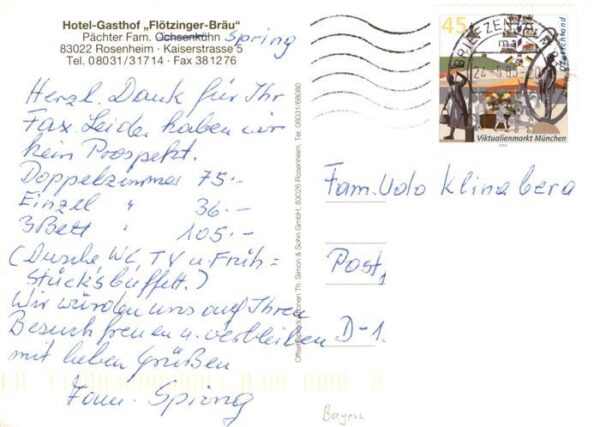 Hotel-Gasthof „Flötzinger-Bräu"
Pächter Fam. Ochsenkühn Spring
83022 Rosenheim · Kaiserstrasse 5
Tel. 08031/31714 · Fax 381276
Herzl. Dank für Ihr
Fax. Leider haben wir
kein Prospekt.
Doppelzimmer 75.-
Einzel " 36.-
3 Bett " 105.-
(Dusche WC TV u. Früh=
stücksbuffett.)
Wir würden uns auf Ihren
Besuch freuen u. verbleiben
mit lieben Grüßen
Fam. Spring
Offsetdruck Simon & Sohn GmbH, 83026 Rosenheim, Tel. 08031/68080
45
Deutschland
BRIEFZENTRUM
Viktualienmarkt München
Fam. Udo Klingberg
Post,
D-1.
Bayern